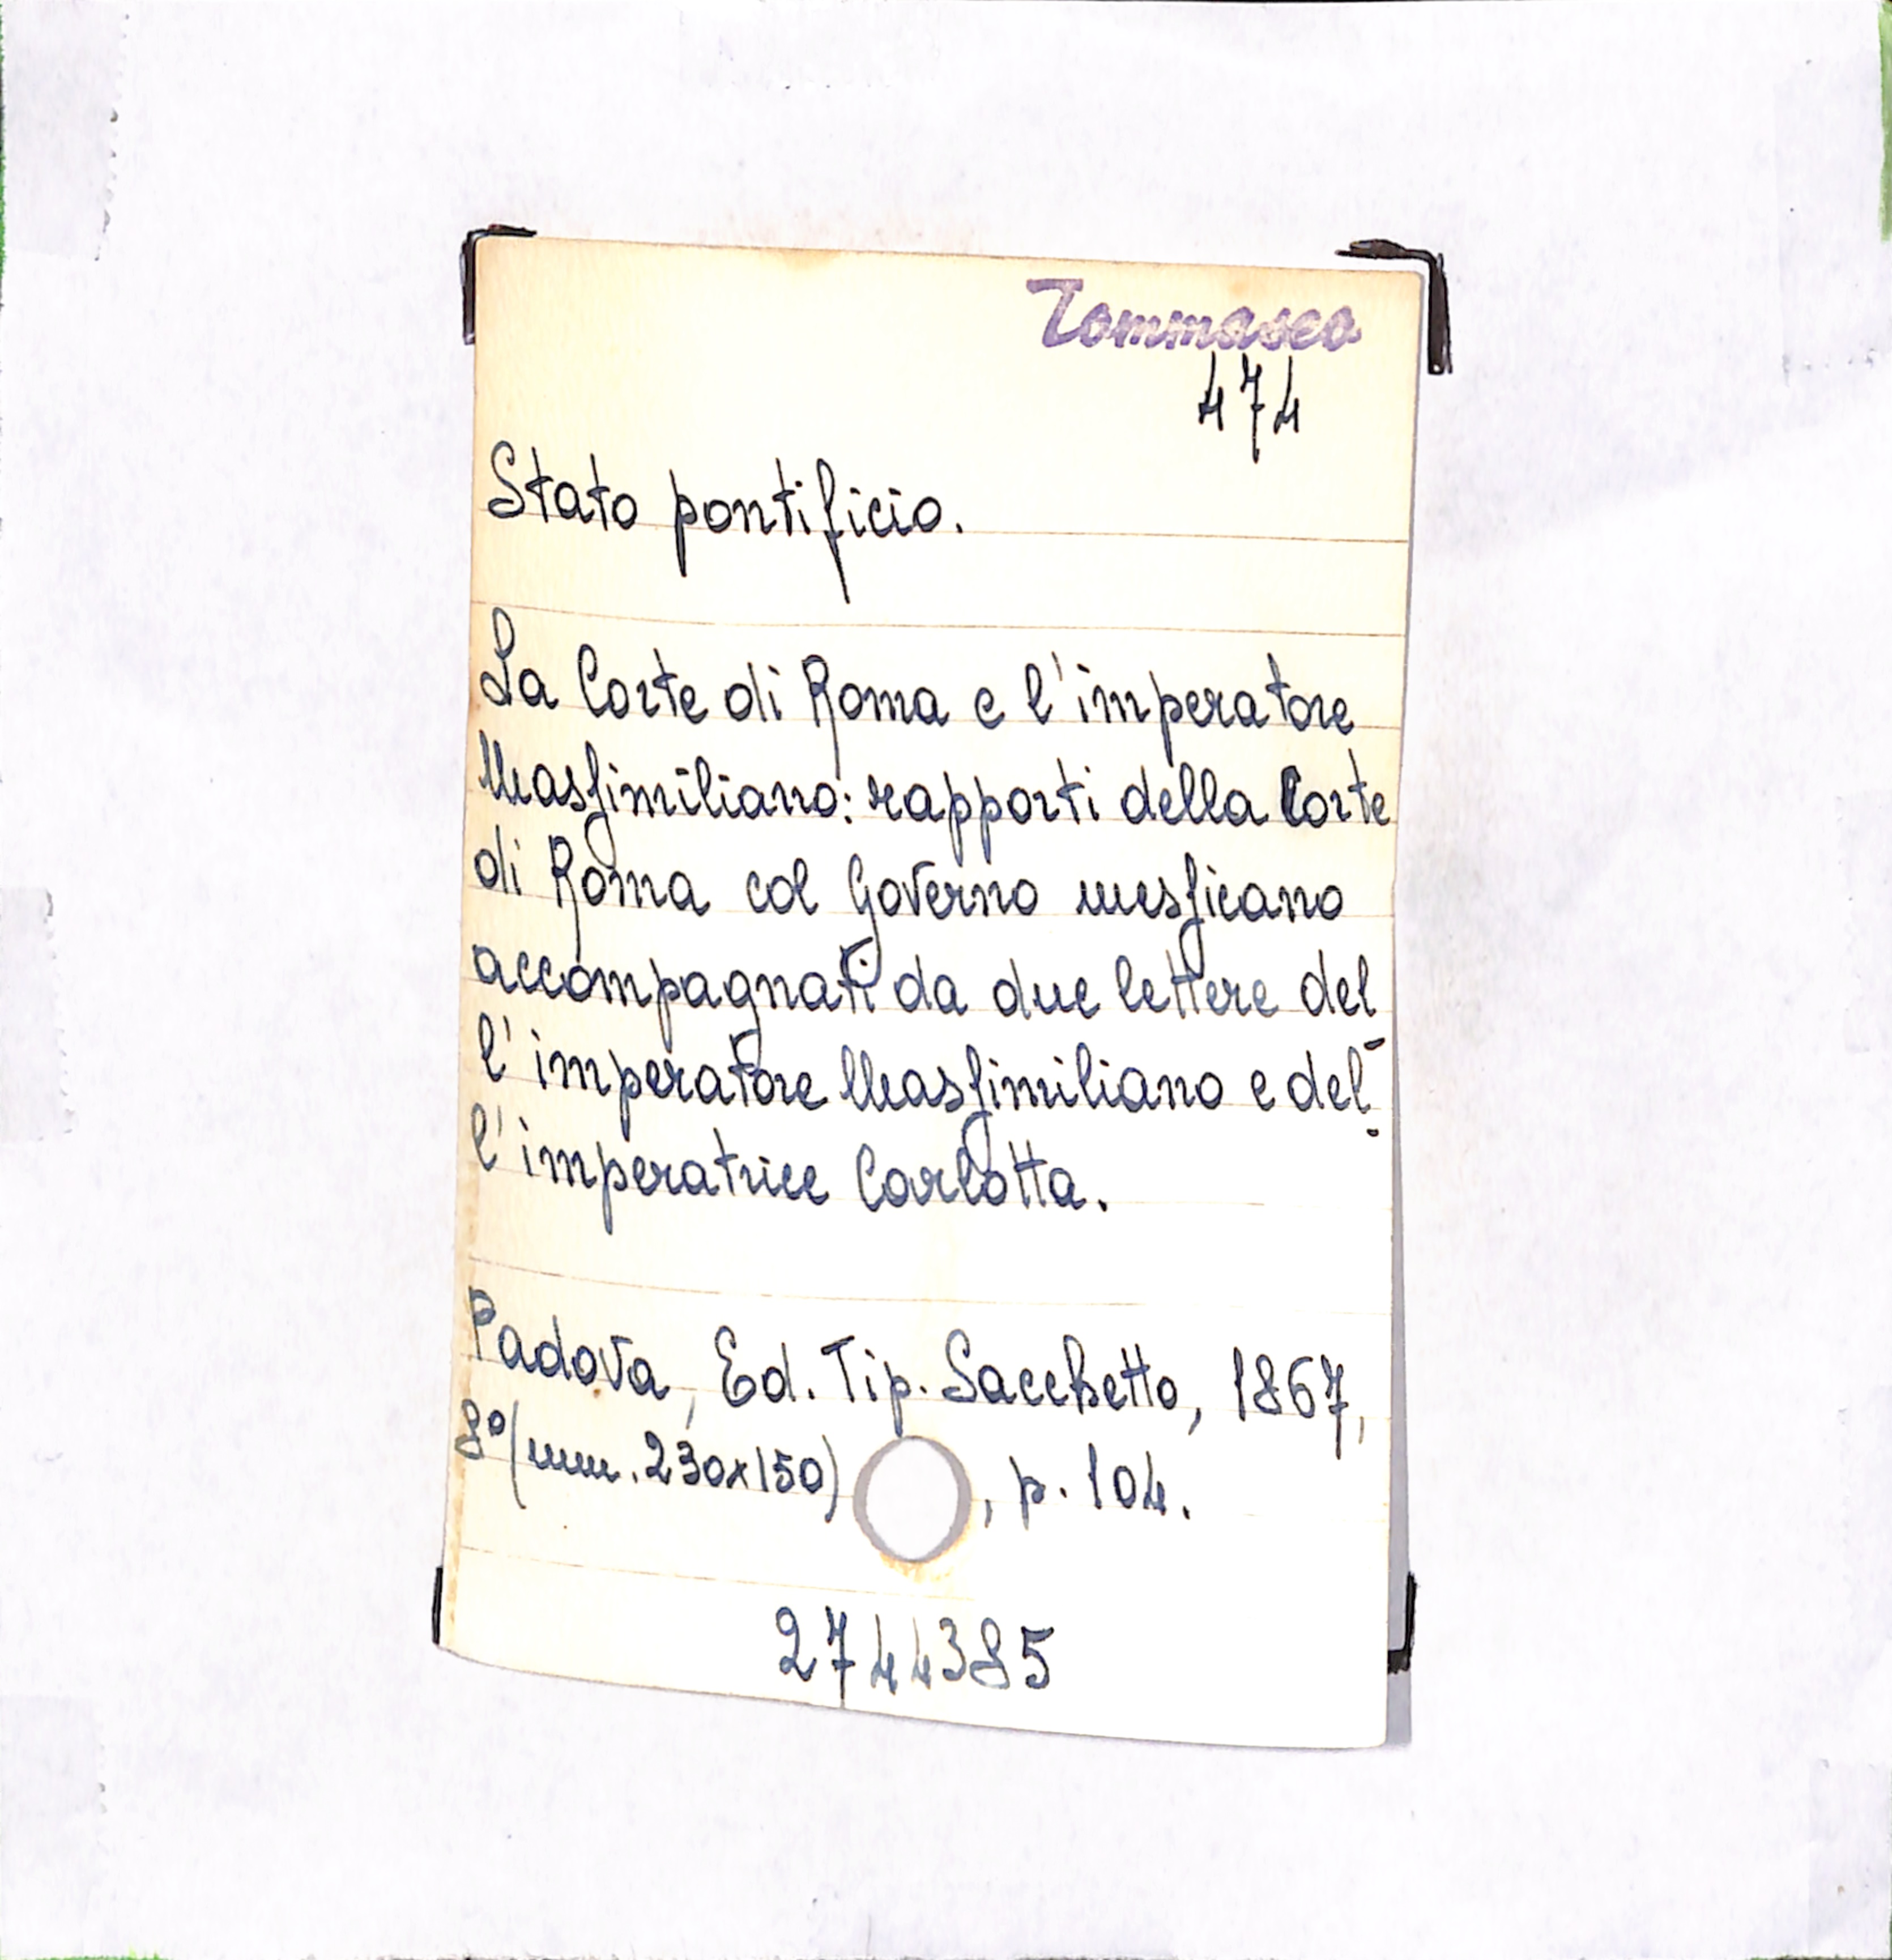 Tommaseo
474
Stato pontificio.
La Corte di Roma e l'imperatore
Massimiliano: rapporti della Corte
di Roma col Governo messicano
accompagnati da due lettere del-
l'imperatore Massimiliano e del-
l'imperatrice Carlotta.
Padova, Ed. Tip. Sacchetto, 1867,
8° (mm. 230x150), p. 104.
2744385